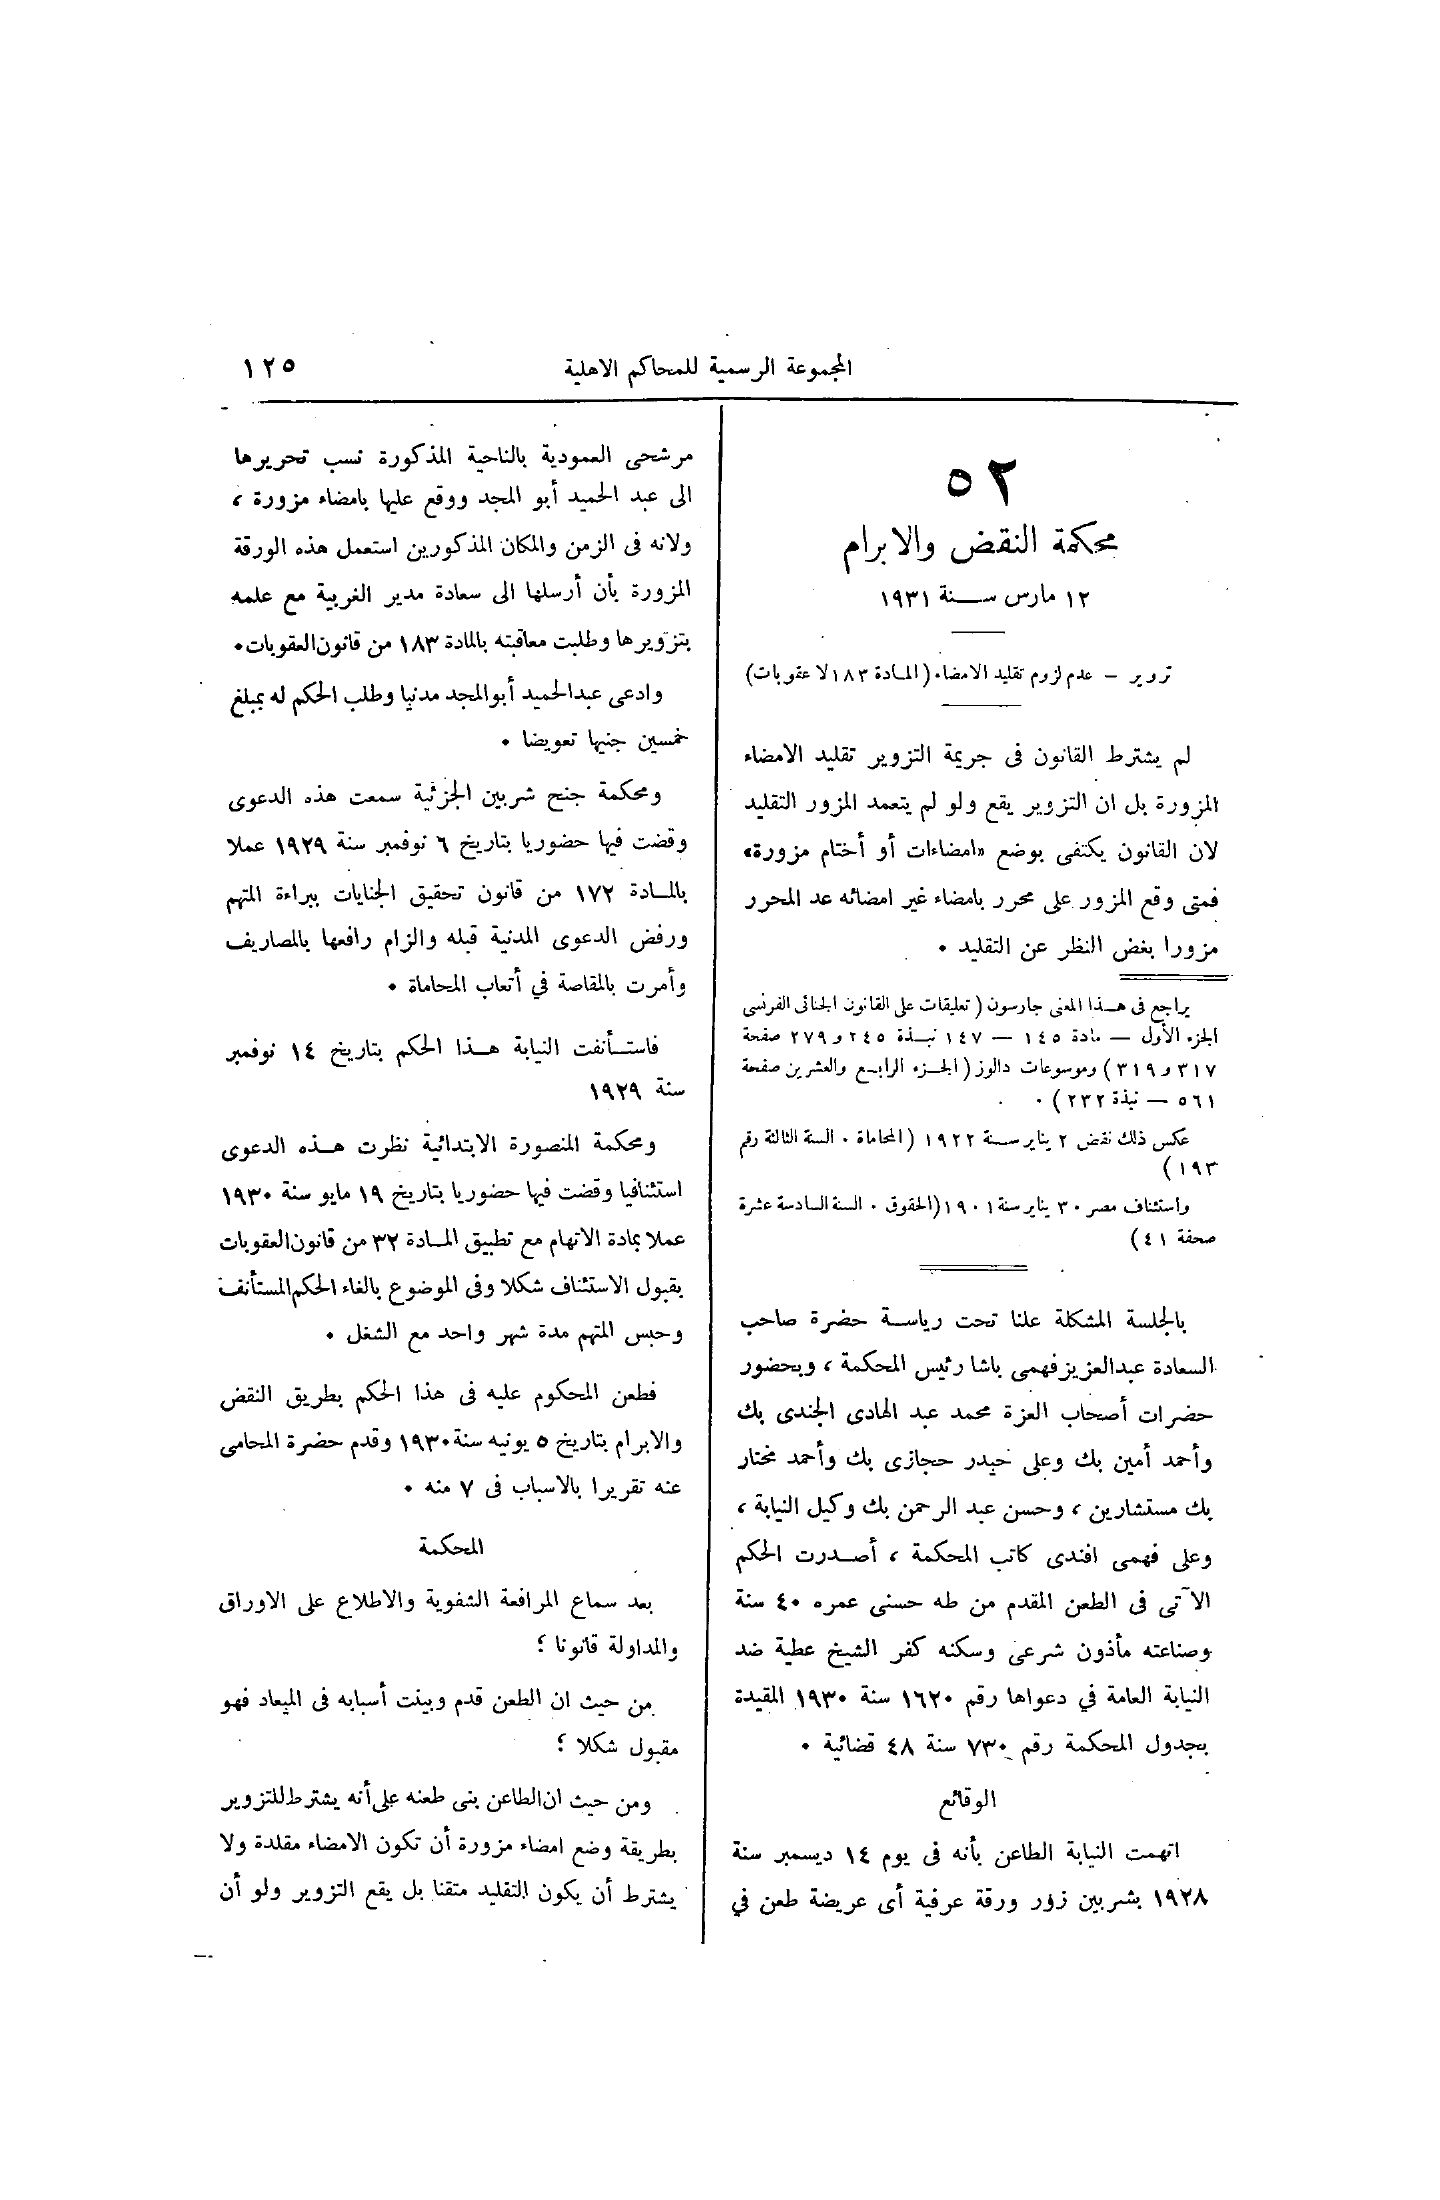 المجموعة الرسمية للمحاكم الاهلية
١٢٥
٥٢
محكمة النقض والابرام
١٢ مارس سنة ١٩٣١
تزوير – عدم لزوم تقليد الامضاء (المادة ١٨٣ لا عقوبات)
لم يشترط القانون فى جريمة التزوير تقليد الامضاء
المزورة بل ان التزوير يقع ولو لم يتعمد المزور التقليد
لان القانون يكتفى بوضع «امضاءات أو أختام مزورة»
فمتى وقع المزور على محرر بامضاء غير امضائه عد المحرر
مزورا بغض النظر عن التقليد •
يراجع فى هذا المعنى جارسون (تعليقات على القانون الجنائى الفرنسى
الجزء الأول — مادة ١٤٥ — ١٤٧ نبذة ٢٤٥ و ٢٧٩ صفحة
٣١٧ و ٣١٩) وموسوعات دالوز (الجزء الرابع والعشرين صفحة
٥٦١ — نبذة ٢٣٢) •
عكس ذلك نقض ٢ يناير سنة ١٩٢٢ (المحاماة • السنة الثالثة رقم
١٩٣)
واستئناف مصر ٣٠ يناير سنة ١٩٠١ (الحقوق • السنة السادسة عشرة
صحفة ٤١)
بالجلسة المشكلة علنا تحت رياسة حضرة صاحب
السعادة عبدالعزيز فهمى باشا رئيس المحكمة ، وبحضور
حضرات أصحاب العزة محمد عبد الهادى الجندى بك
وأحمد أمين بك وعلى حيدر حجازى بك وأحمد مختار
بك مستشارين ، وحسن عبد الرحمن بك وكيل النيابة ،
وعلى فهمى افندى كاتب المحكمة ، أصدرت الحكم
الآتى فى الطعن المقدم من طه حسنى عمره ٤٠ سنة
وصناعته مأذون شرعى وسكنه كفر الشيخ عطية ضد
النيابة العامة في دعواها رقم ١٦٢٠ سنة ١٩٣٠ المقيدة
بجدول المحكمة رقم ٧٣٠ سنة ٤٨ قضائية •
الوقائع
اتهمت النيابة الطاعن بأنه فى يوم ١٤ ديسمبر سنة
١٩٢٨ بشربين زور ورقة عرفية أى عريضة طعن في
مرشحى العمودية بالناحية المذكورة نسب تحريرها
الى عبد الحميد أبو المجد ووقع عليها بامضاء مزورة ،
ولانه فى الزمن والمكان المذكورين استعمل هذه الورقة
المزورة بأن أرسلها الى سعادة مدير الغربية مع علمه
بتزويرها وطلبت معاقبته بالمادة ١٨٣ من قانون العقوبات•
وادعى عبدالحميد أبوالمجد مدنيا وطلب الحكم له بمبلغ
خمسين جنيها تعويضا •
ومحكمة جنح شربين الجزئية سمعت هذه الدعوى
وقضت فيها حضوريا بتاريخ ٦ نوفمبر سنة ١٩٢٩ عملا
بالمادة ١٧٢ من قانون تحقيق الجنايات ببراءة المتهم
ورفض الدعوى المدنية قبله والزام رافعها بالمصاريف
وأمرت بالمقاصة في أتعاب المحاماة •
فاستأنفت النيابة هذا الحكم بتاريخ ١٤ نوفمبر
سنة ١٩٢٩
ومحكمة المنصورة الابتدائية نظرت هذه الدعوى
استئنافيا وقضت فيها حضوريا بتاريخ ١٩ مايو سنة ١٩٣٠
عملا بمادة الاتهام مع تطبيق المادة ٣٢ من قانون العقوبات
بقبول الاستئناف شكلا وفى الموضوع بالغاء الحكم المستأنف
وحبس المتهم مدة شهر واحد مع الشغل •
فطعن المحكوم عليه فى هذا الحكم بطريق النقض
والابرام بتاريخ ٥ يونيه سنة ١٩٣٠ وقدم حضرة المحامى
عنه تقريرا بالاسباب فى ٧ منه •
المحكمة
بعد سماع المرافعة الشفوية والاطلاع على الاوراق
والمداولة قانونا ؛
من حيث ان الطعن قدم وبينت أسبابه فى الميعاد فهو
مقبول شكلا ؛
ومن حيث ان الطاعن بنى طعنه على أنه يشترط للتزوير
بطريقة وضع امضاء مزورة أن تكون الامضاء مقلدة ولا
يشترط أن يكون التقليد متقنا بل يقع التزوير ولو أن